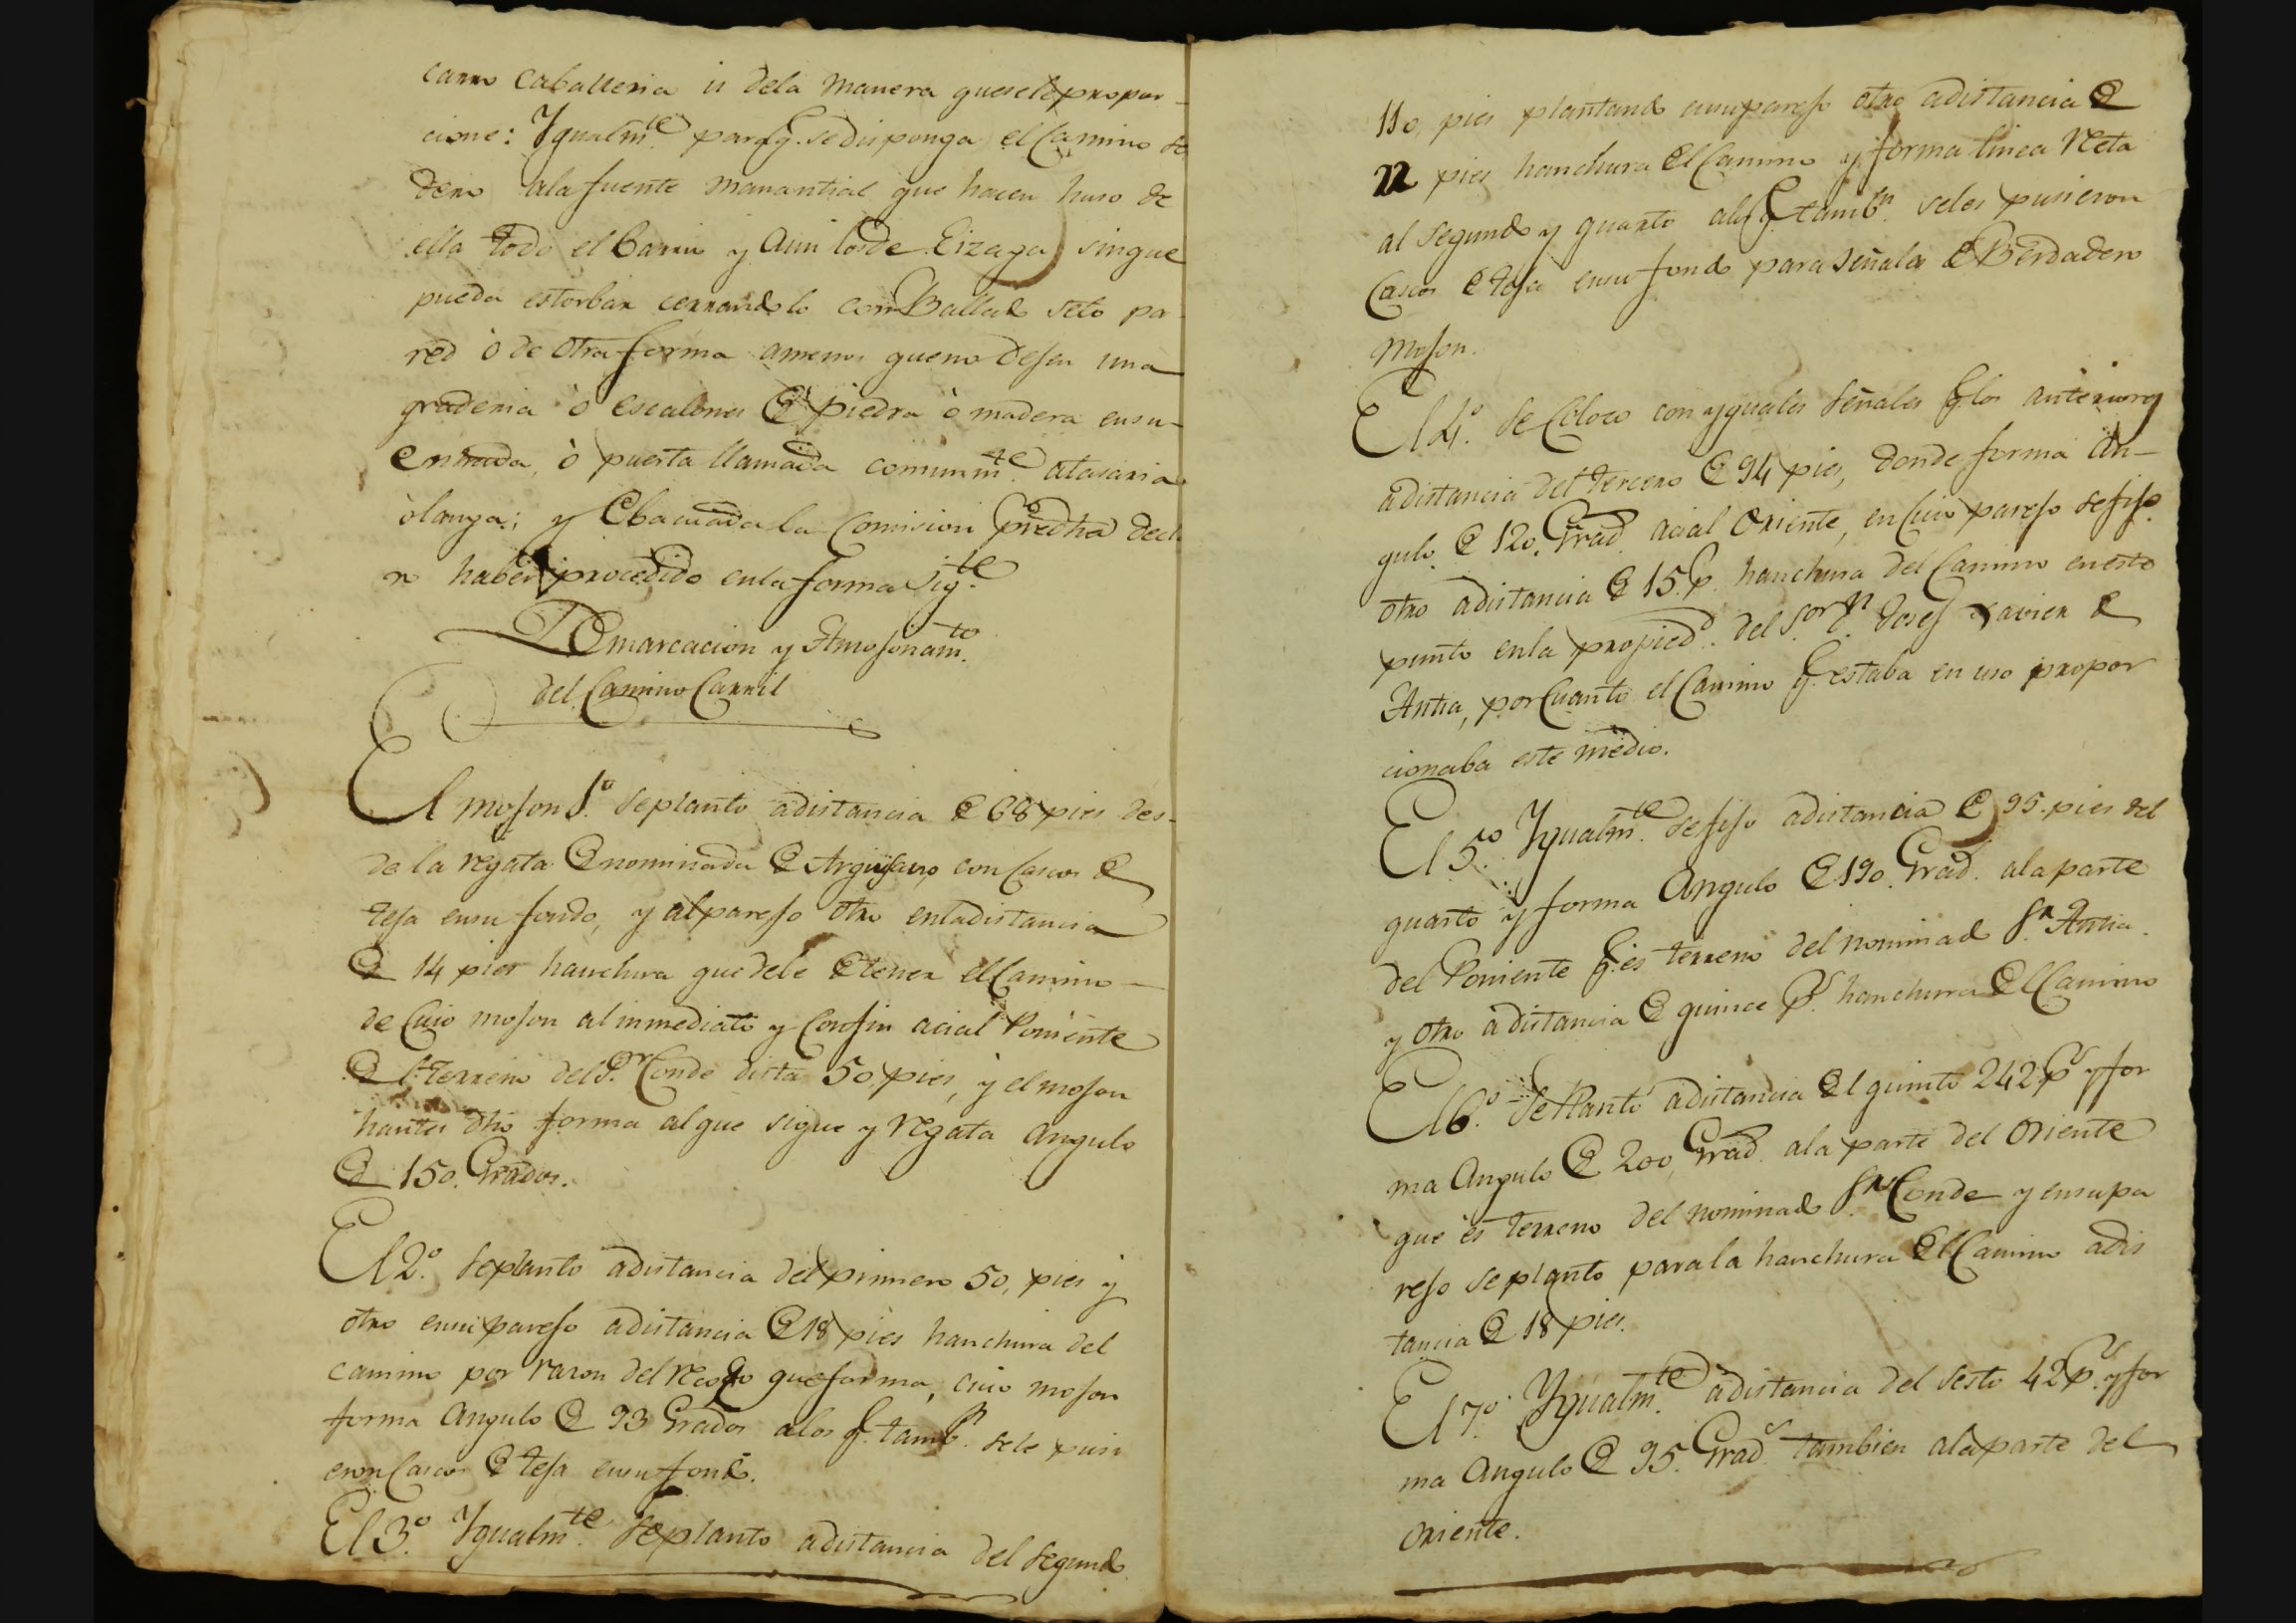 carro caballeria ú dela manera quesele propor-
cione: Igualmte. paraq. sedisponga el Camino se
dero ala fuente manantial que hacen huso de
ella todo el barrio y aun losde Eizaga sinque
pueda estorbar cerrandolo con Ballado seto pa-
red ò de otra forma amenos queno dejen una
graderia ò escalones de piedra ò madera ensu-
entrada, ò puerta llamada comunmte. atasaria
ò langa; y Ebacuada la Comision Predha decla
n haber procedido enla forma sigte.
Demarcacion y Amojonamto.
del Camino Carril
El mojon 1º. seplanto adistancia de 68 pies des-
de la regata denominada de con cascos de
teja ensu fondo, y alparejo otro enladistancia
de 14 pies hanchura que debe de tener el Camino-
de Cuio mojon al inmediato y Confin acial Poniente
del terreno del Sr. Conde dista 50 pies, y el mojon
hantes dho forma al que sigue y regata angulo
de 150. Grados.
El 2º. seplanto adistancia del primero 50, pies y
otro ensuparejo adistancia de 18 pies hanchura del
camino por razon del recodo queforma, cuio mojon
forma Angulo de 93 Grados alos q. tambn. sele pusi
eron Cascos de teja ensu fondo.
El 3º. Igualmte. seplanto adistancia del segundo
110, pies plantando ensuparejo otro adistancia de
22 pies hanchura del Camino y forma linea Reta
al segundo y quarto alos q. tambn. seles pusieron
Cascos de teja ensu fondo para señales de Berdadero
Mojon.
El 4º. se Coloco con yguales señales q. los anteriores
adistancia del tercero de 94 pies, donde forma An-
gulo de 120. Grad. acial Oriente, en Cuio parejo sefijo
otro adistancia de 15. p. hanchura del Camino eneste
punto enla propiedd. del Sor. Dn. Josef Xavier de
Antia, por Cuanto el Camino q. estaba en uso propor
cionaba este medio.
El 5º. Igualmte. sefijo adistancia de 95. pies del
quarto y forma Angulo de 190. Grad. ala parte
del Poniente q. es terreno del nominado Sr. Antia.
y otro adistancia de quince ps. hanchura del Camino
El 6º. se Planto adistancia del quinto 242 ps. y for
ma Angulo de 200, Grad. ala parte del Oriente
que es terreno del nominado Sr. Conde y ensupa
rejo seplanto parala hanchura del Camino adis
tancia de 18 pies.
El 7º. Igualmte. adistancia del sesto 42 ps. y for
ma Angulo de 95. Grads. tambien ala parte del
Oriente.